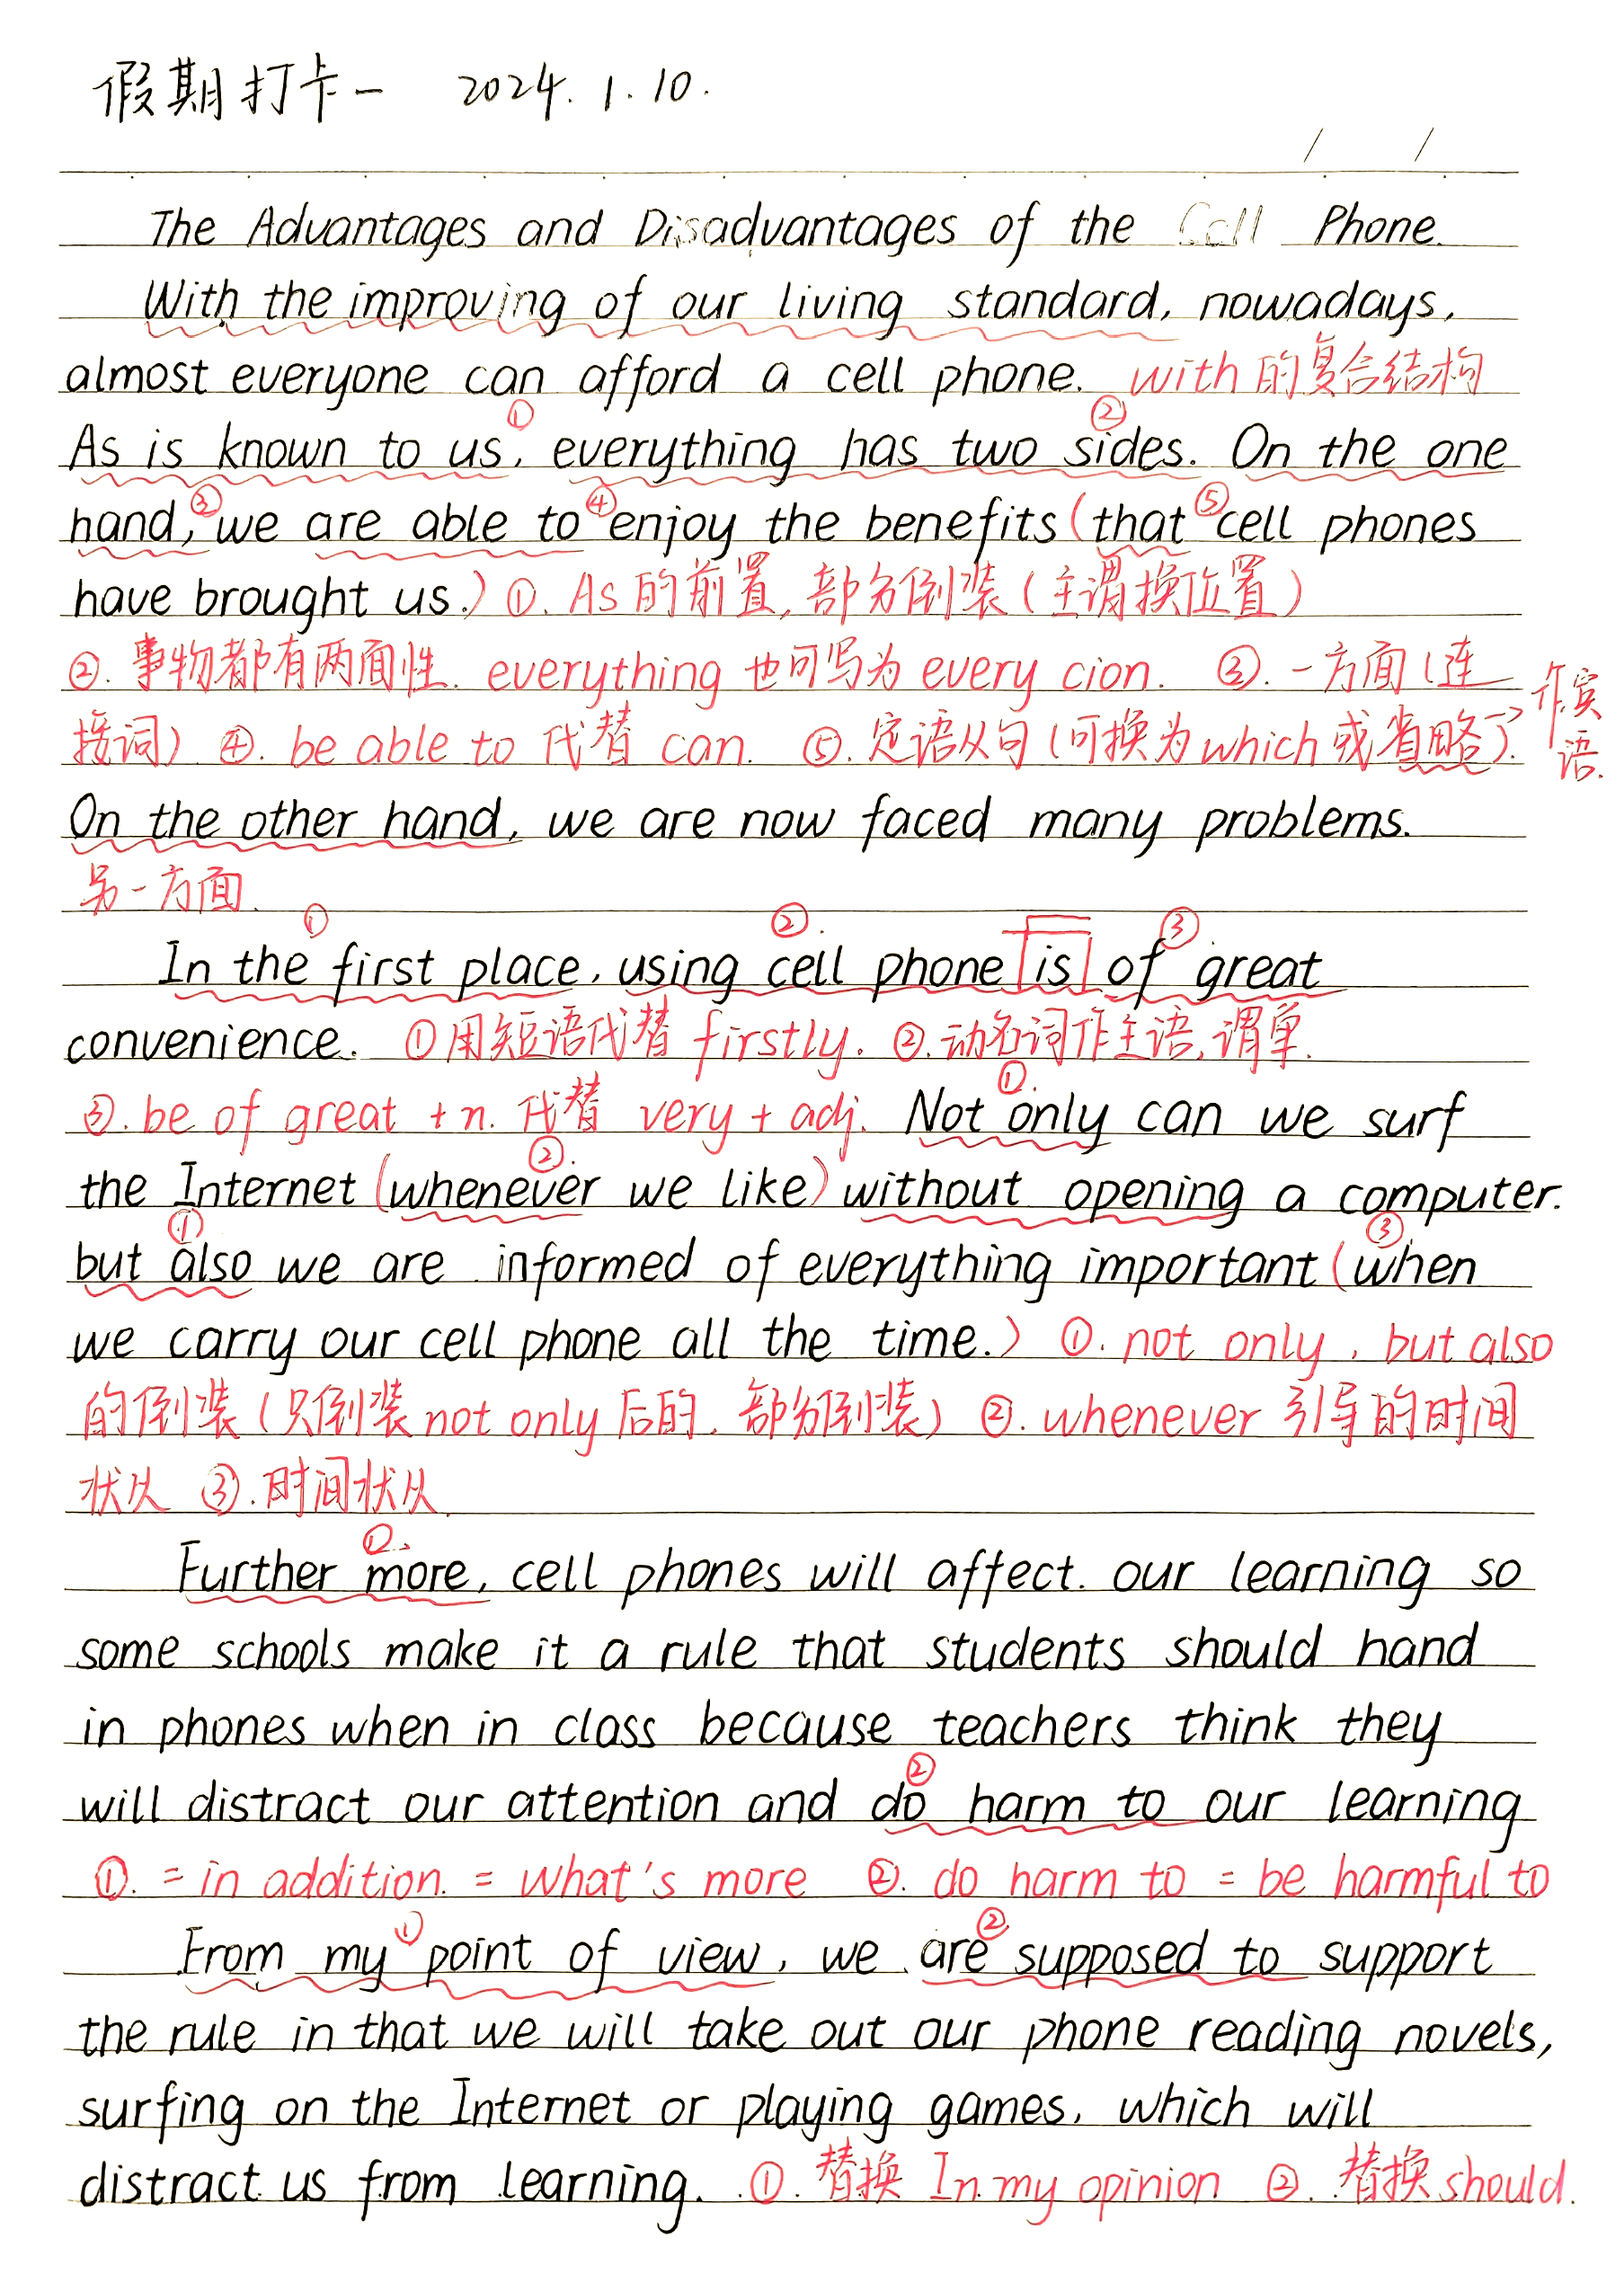 假期打卡一 2024.1.10.
/ /
The Advantages and Disadvantages of the Cell Phone.
With the improving of our living standard, nowadays,
almost everyone can afford a cell phone. with的复合结构
① ②
As is known to us, everything has two sides. On the one
③ ④ ⑤
hand, we are able to enjoy the benefits (that cell phones
have brought us.) ①. As的前置,部分倒装(主谓换位置)
②. 事物都有两面性. everything 也可写为 every cion. ③. 一方面(连
接词) ④. be able to 代替 can. ⑤. 定语从句(可换为which或省略)→作宾语.
On the other hand, we are now faced many problems.
另一方面.
① ②. ③
In the first place, using cell phone is of great
convenience. ①用短语代替 firstly. ②.动名词作主语,谓单.
③. be of great + n. 代替 very + adj. ①. Not only can we surf
②.
the Internet (whenever we like) without opening a computer.
① ③
but also we are informed of everything important (when
we carry our cell phone all the time.) ①. not only , but also
的倒装(只倒装not only后的, 部分倒装) ②. whenever 引导的时间
状从 ③.时间状从.
①.
Further more, cell phones will affect. our learning so
some schools make it a rule that students should hand
in phones when in class because teachers think they
②
will distract our attention and do harm to our learning
①. = in addition. = what's more ②. do harm to = be harmful to
① ②
From my point of view, we are supposed to support
the rule in that we will take out our phone reading novels,
surfing on the Internet or playing games, which will
distract us from learning. ①. 替换 In my opinion ②. 替换 should.